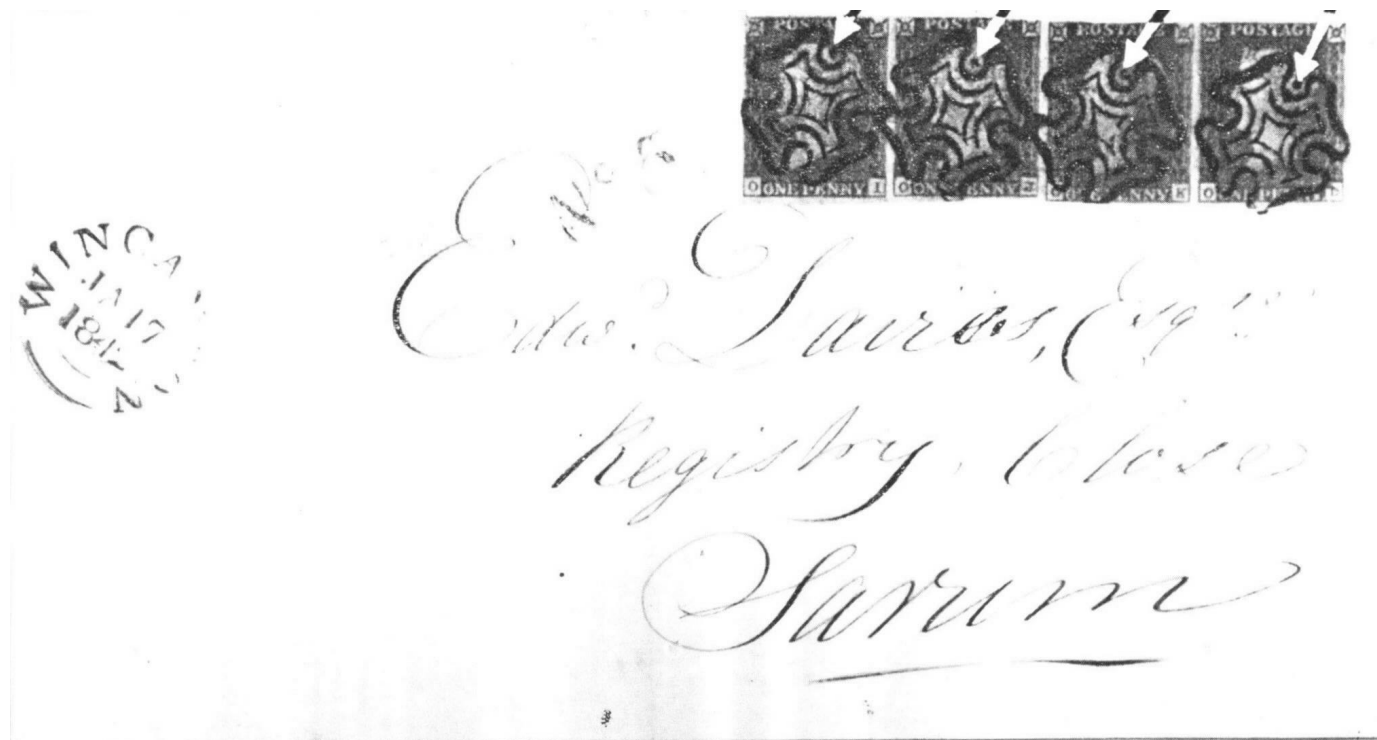 POSTAGE POSTAGE POSTAGE POSTAGE
O ONE PENNY I O ONE PENNY O ONE PENNY K O ONE PENNY
No
WINCA N
JA 17
1842
Edw. Davies, Esqre
Registry, Close
Sarum